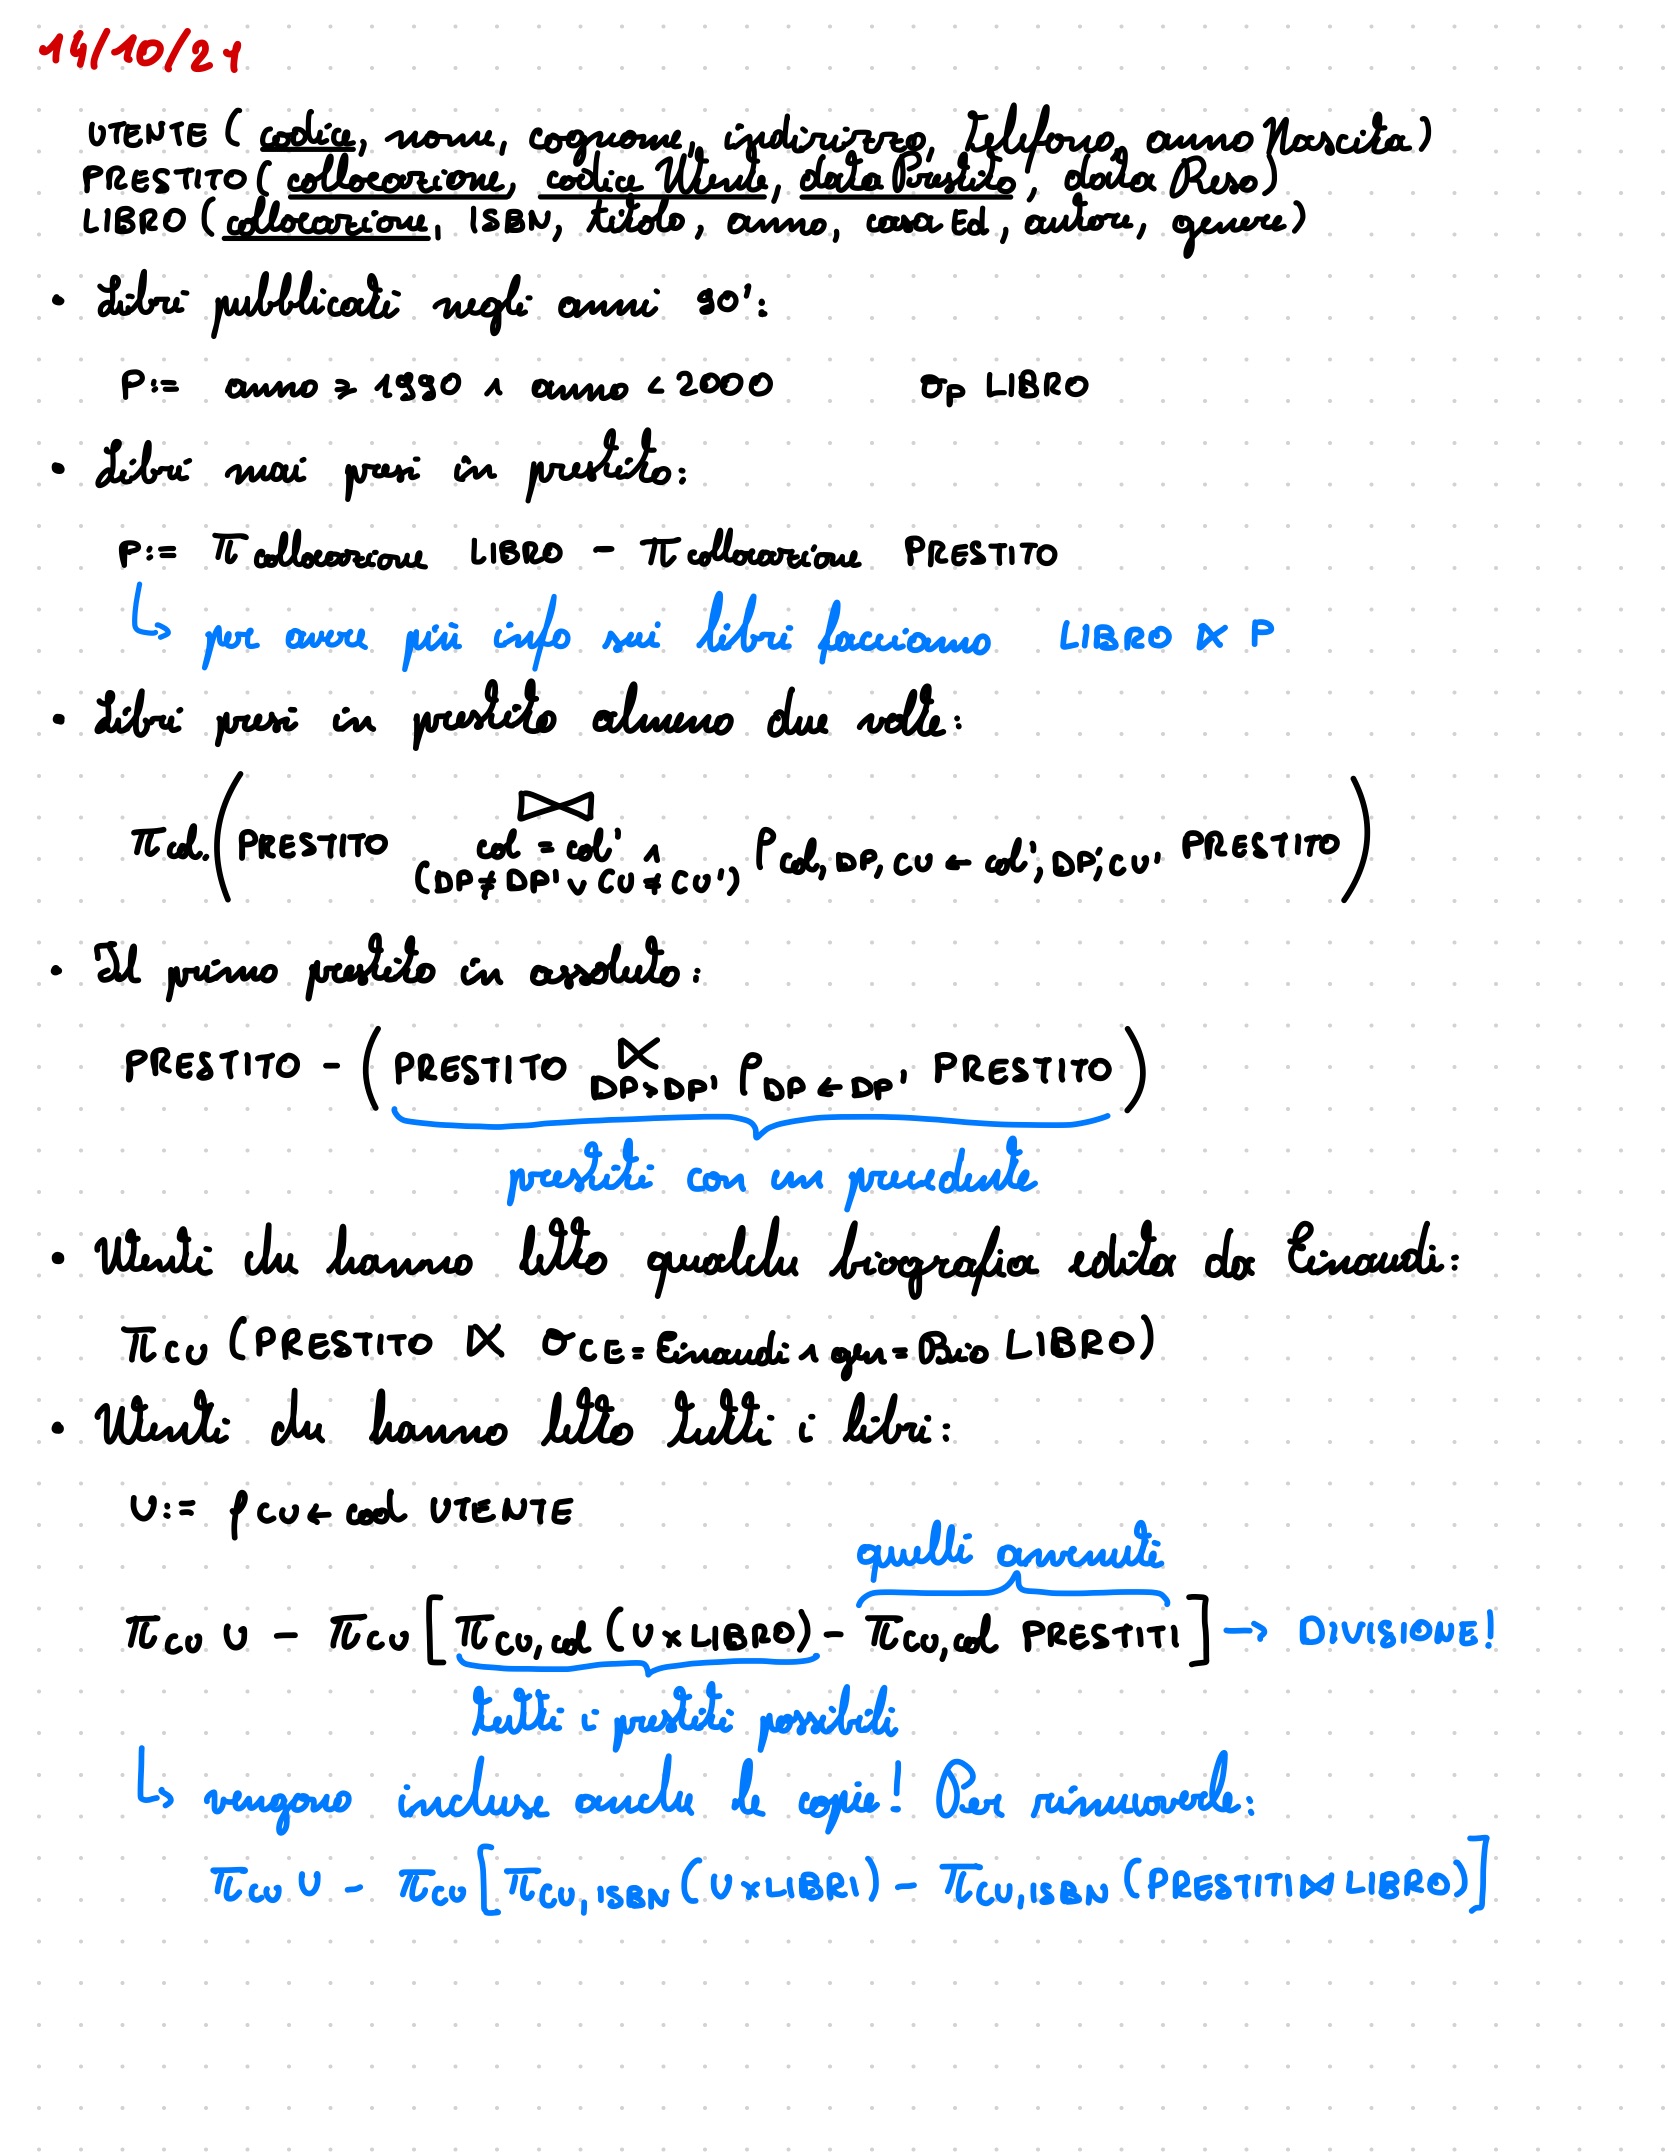 14/10/21
UTENTE (codice, nome, cognome, indirizzo, telefono, anno Nascita)
PRESTITO (collocazione, codice Utente, data Prestito, data Reso)
LIBRO (collocazione, ISBN, titolo, anno, casa Ed, autore, genere)
• Libri pubblicati negli anni 90':
P:= anno ≥ 1990 ∧ anno < 2000 σ_P LIBRO
• Libri mai presi in prestito:
P:= π collocazione LIBRO - π collocazione PRESTITO
↳ per avere più info sui libri facciamo LIBRO ⋉ P
• Libri presi in prestito almeno due volte:
π col. (PRESTITO ⋈ col = col' ∧ (DP ≠ DP' ∨ CU ≠ CU') ρ col, DP, CU ← col', DP', CU' PRESTITO)
• Il primo prestito in assoluto:
PRESTITO - (PRESTITO ⋉ DP>DP' ρ DP ← DP' PRESTITO)
prestiti con un precedente
• Utenti che hanno letto qualche biografia edita da Einaudi:
π CU (PRESTITO ⋉ σ CE = Einaudi ∧ gen = Bio LIBRO)
• Utenti che hanno letto tutti i libri:
U:= ρ CU ← cod UTENTE
quelli avvenuti
π CU U - π CU [π CU, col (U × LIBRO) - π CU, col PRESTITI] → DIVISIONE!
tutti i prestiti possibili
↳ vengono incluse anche le copie! Per rimuoverle:
π CU U - π CU [π CU, ISBN (U × LIBRI) - π CU, ISBN (PRESTITI ⋈ LIBRO)]